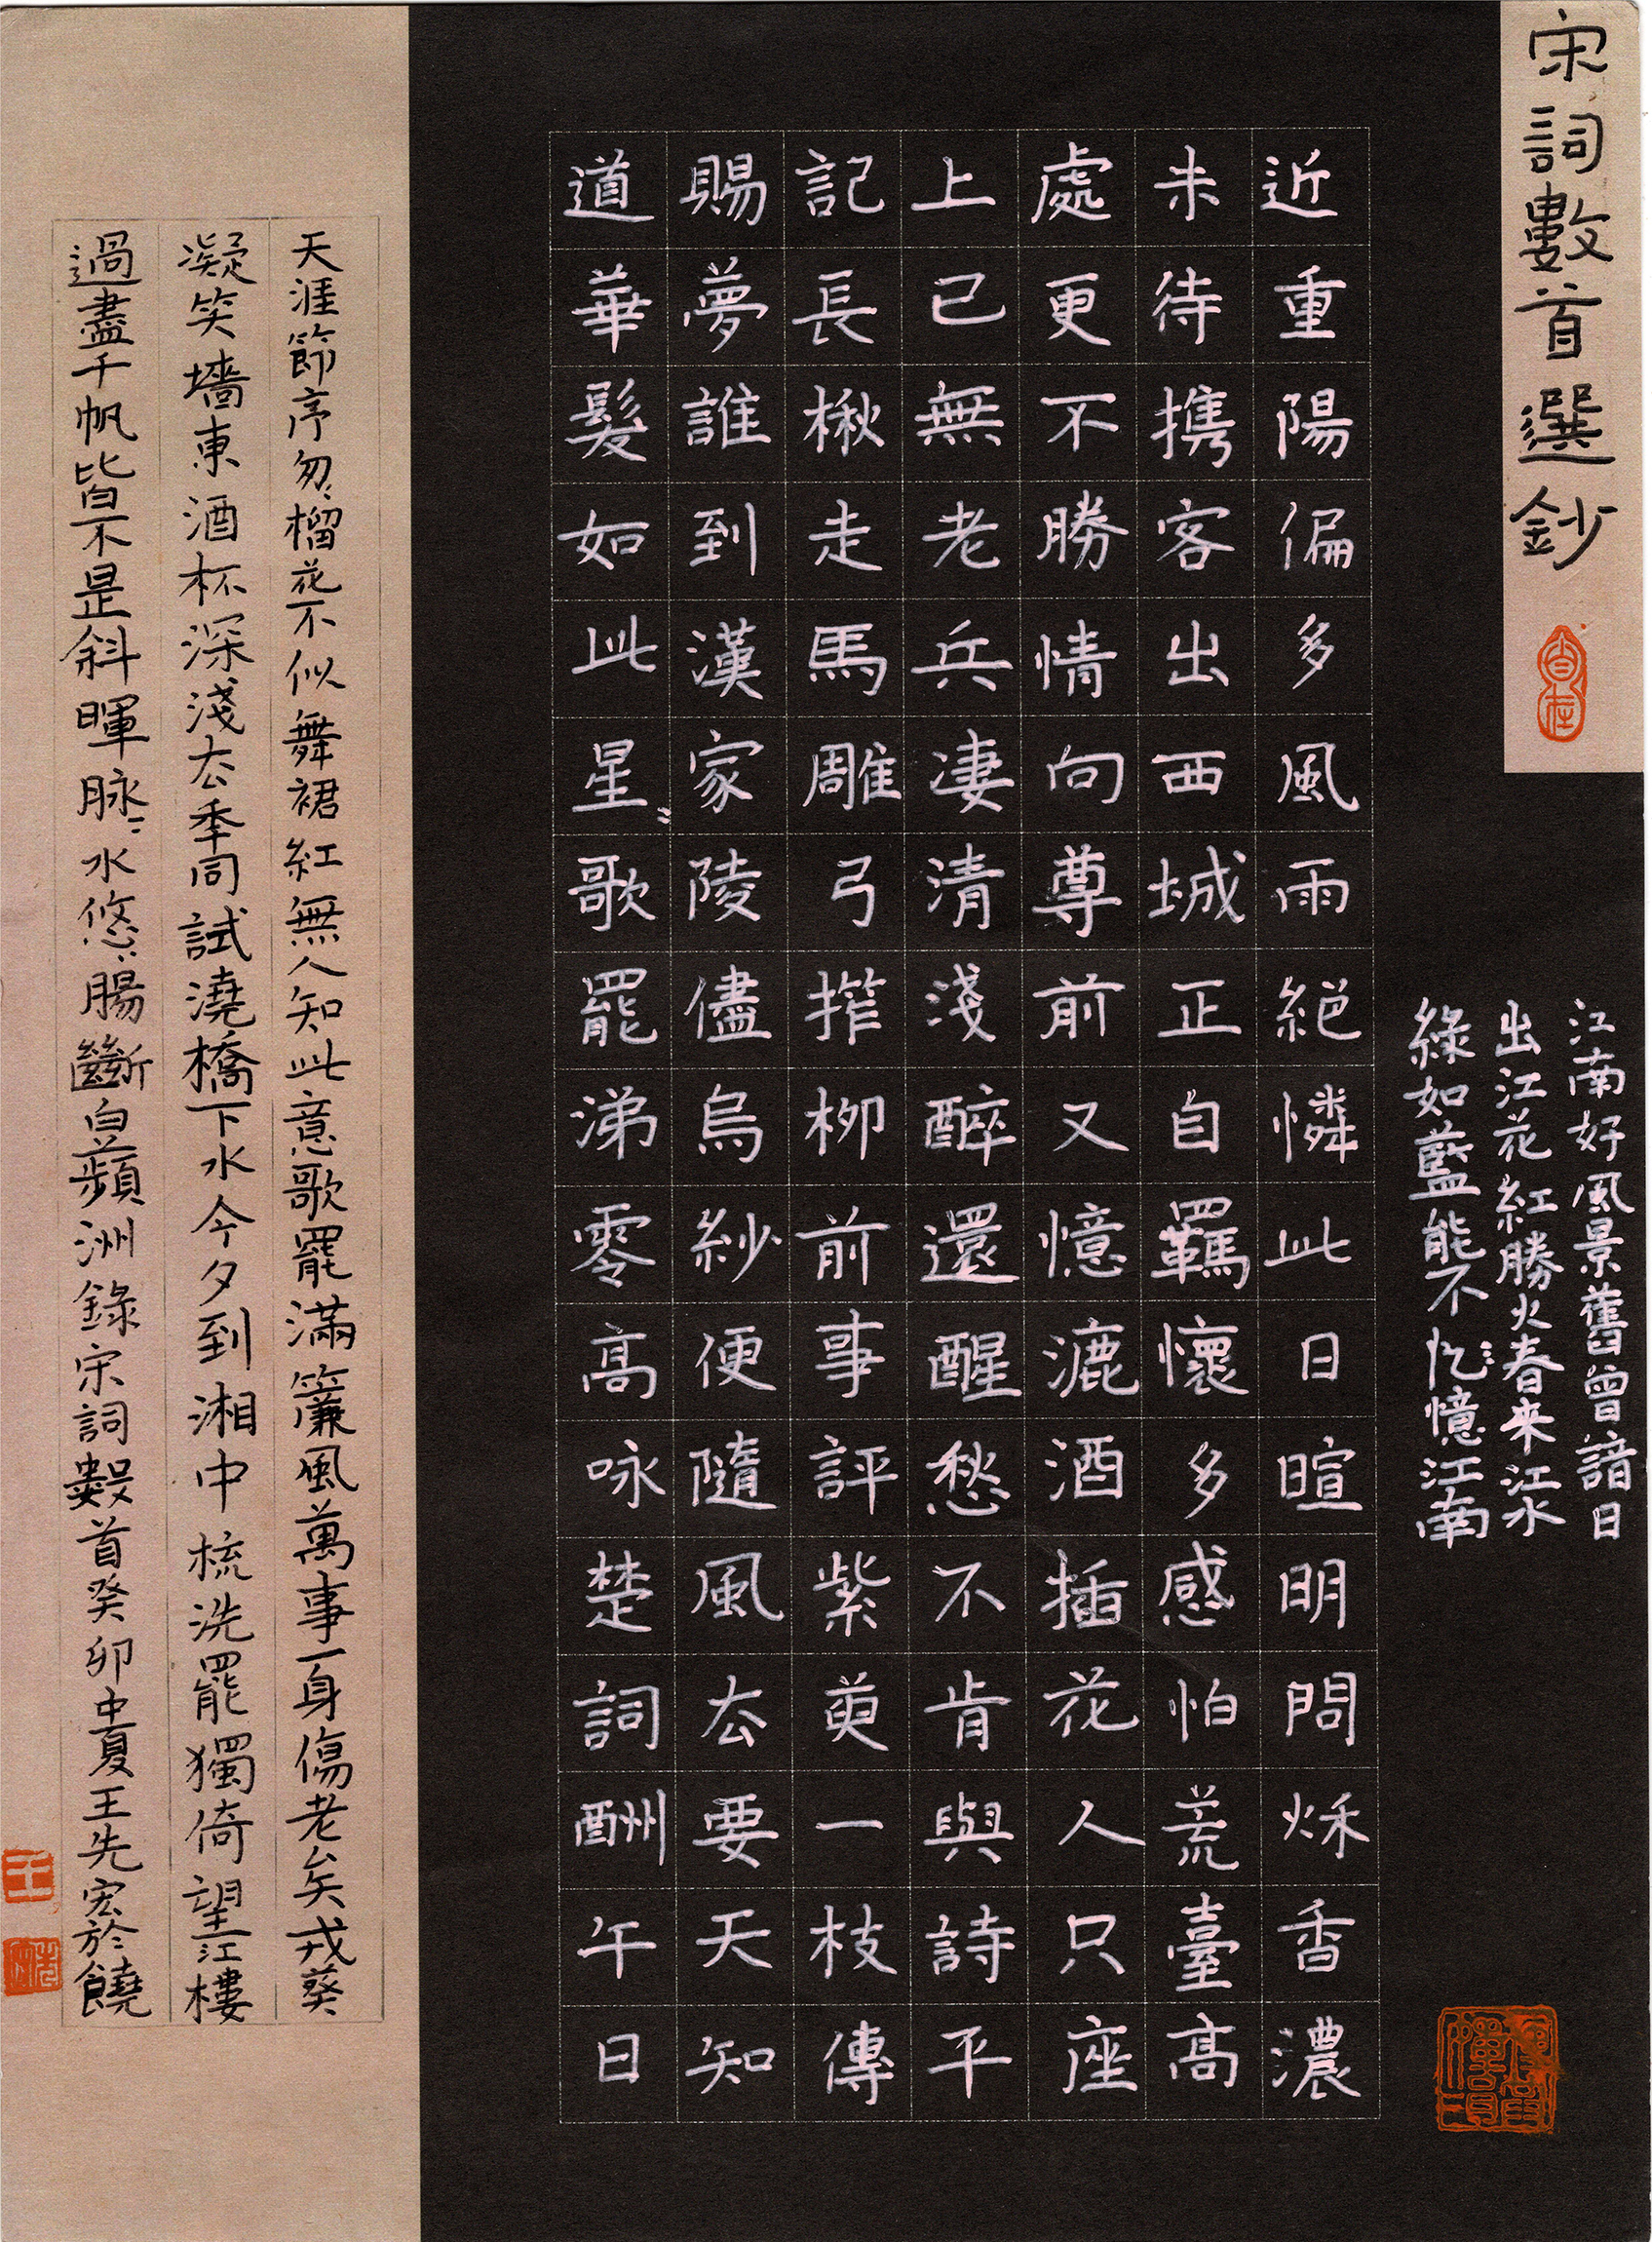 宋詞數首選鈔
江南好風景舊曾諳日
出江花紅勝火春來江水
綠如藍能不忆憶江南
近重陽偏多風雨絕憐此日暄明問秌香濃
未待攜客出西城正自羈懷多感怕荒臺高
處更不勝情向尊前又憶漉酒插花人只座
上已無老兵淒清淺醉還醒愁不肯與詩平
記長楸走馬雕弓搾柳前事評紫萸一枝傳
賜夢誰到漢家陵儘烏紗便隨風去要天知
道華髮如此星〻歌罷涕零高咏楚詞酬午日
天涯節序匆〻榴花不似舞裙紅無人知此意歌罷滿簾風萬事一身傷老矣戎葵
凝笑墻東酒杯深淺去季同試澆橋下水今夕到湘中梳洗罷獨倚望江樓
過盡千帆皆不是斜暉脉〻水悠〻腸斷白蘋洲錄宋詞數首癸卯中夏王先宏於饒